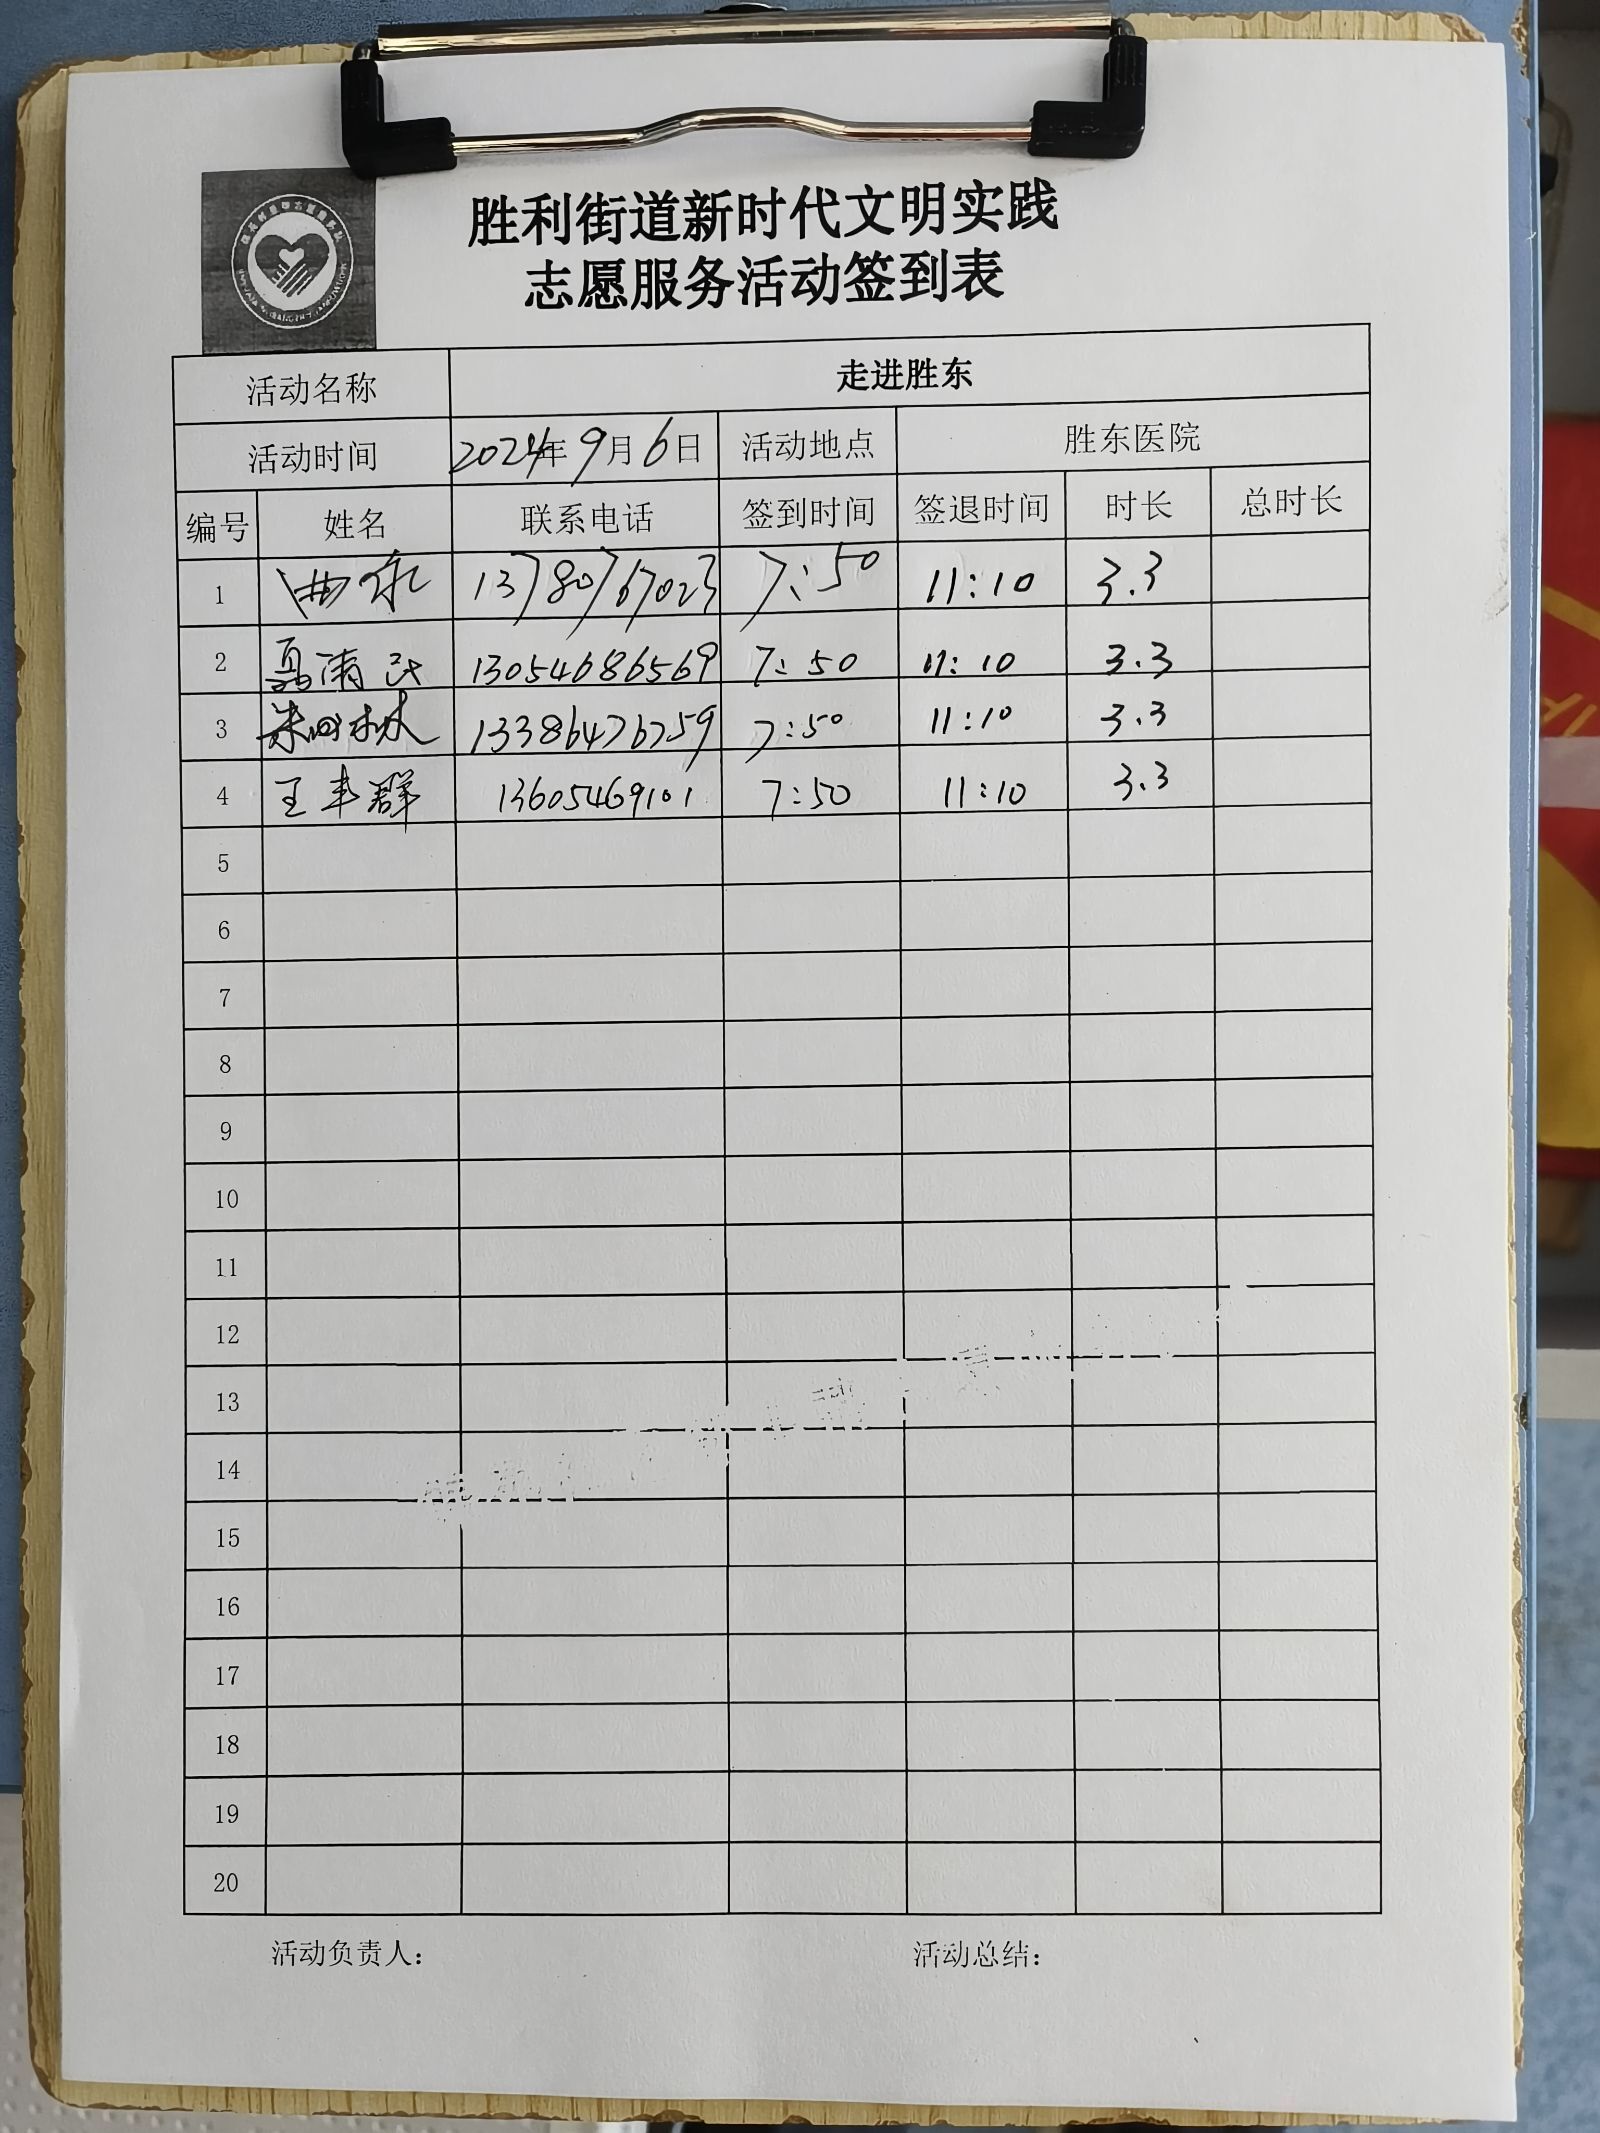 胜利街道新时代文明实践
志愿服务活动签到表
活动名称 走进胜东
活动时间 2024年9月6日 活动地点 胜东医院
编号 姓名 联系电话 签到时间 签退时间 时长 总时长
1 13780767023 7:50 11:10 3.3
2 13054686569 7:50 11:10 3.3
3 13386476759 7:50 11:10 3.3
4 王丰群 13605469101 7:50 11:10 3.3
5
6
7
8
9
10
11
12
13
14
15
16
17
18
19
20
活动负责人: 活动总结: